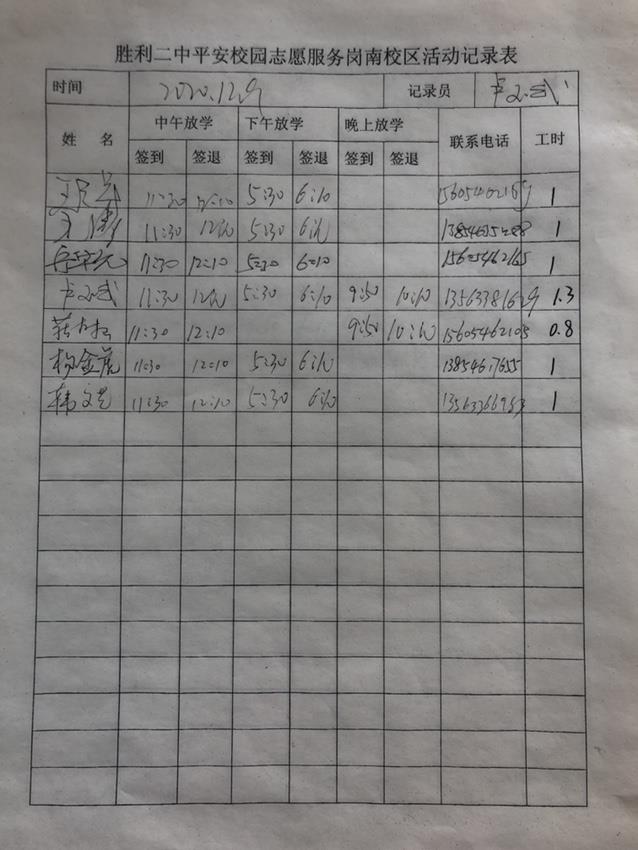 胜利二中平安校园志愿服务岗南校区活动记录表
时间 2020.12.9 记录员
姓 名 中午放学 下午放学 晚上放学 联系电话 工时
签到 签退 签到 签退 签到 签退
11:30 12:10 5:30 6:10 1
11:30 12:10 5:30 6:10 1
11:30 12:10 5:30 6:10 15605462165 1
11:30 12:10 5:30 6:10 9:50 10:10 13563381629 1.3
11:30 12:10 9:50 10:10 15605462105 0.8
杨金虎 11:30 12:10 5:30 6:10 13854617655 1
韩文芝 11:30 12:10 5:30 6:10 13563366953 1